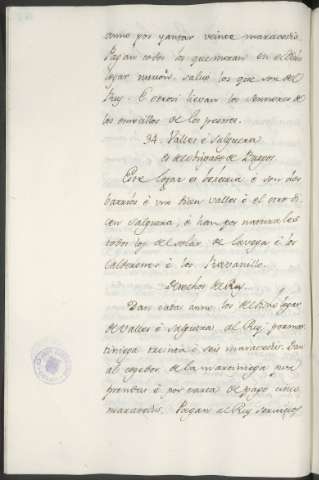 anno por yantar veinte maravedis.
Pagan todos los que moran en el dicho
logar nuncion. salvo los que son del
Rey. E otrosi lievan los sennores de
los omecillos de los pecres.
34. Valles é salguera
Es del obispado de Burgos.
Este logar es behetria é son dos
barrios é un dicen valles é el otro di-
cen Salguera, é han por naturales
todos los del solar de la vega é los
calderones é los Bravanillo.
Derechos del Rey.
Dan cada anno los de dicho logar
de Valles é Salguera al Rey por mar-
tiniega treinta é seis maravedis. Dan
al cogedor de la martiniega por
prendas é por carta de pago cinco
maravedis. Pagan al Rey servicios